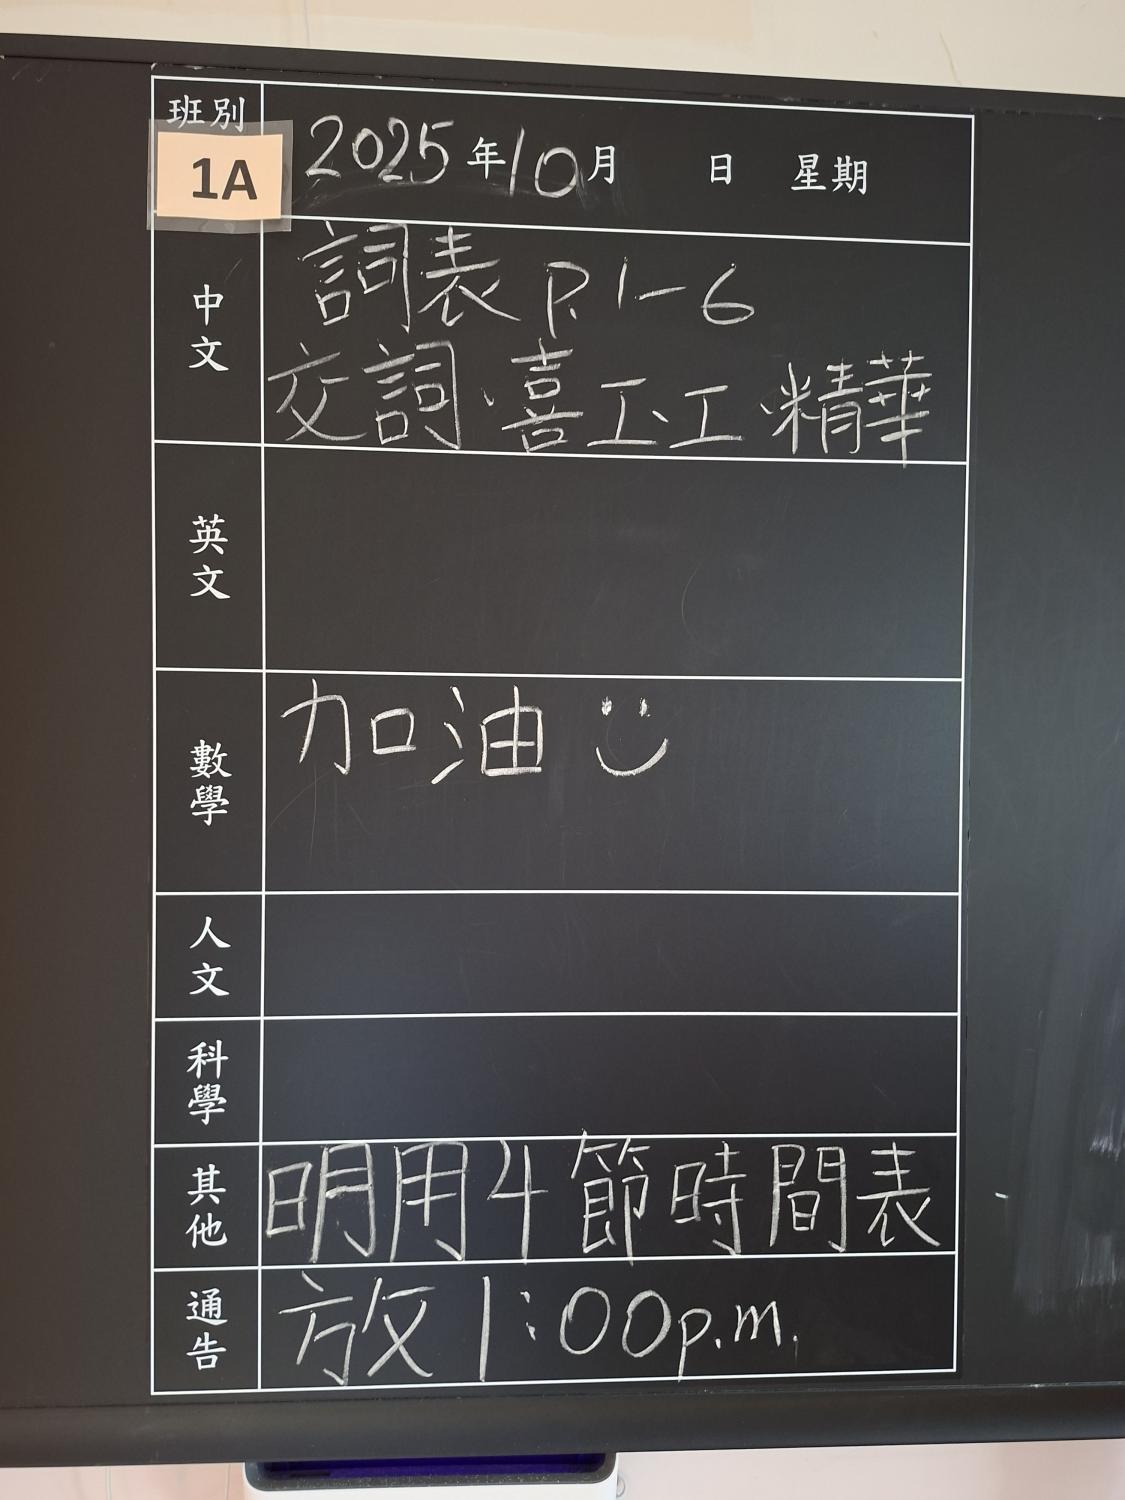 班別
1A
2025年10月 日 星期
中文
詞表 P.1-6
交詞、喜工、工、精華
英文
數學
加油
人文
科學
其他
明用4節時間表
通告
放1:00p.m.